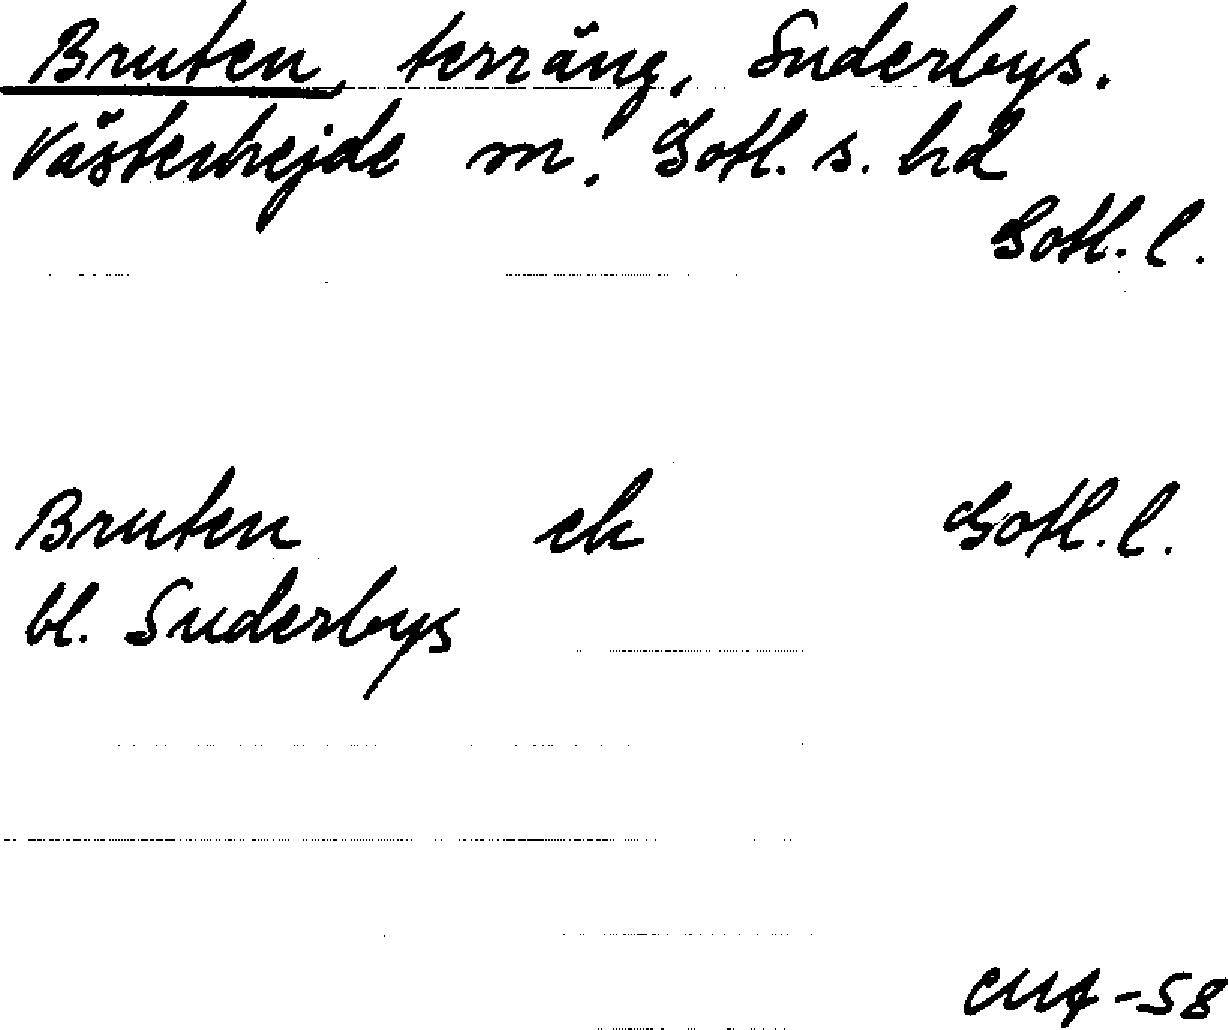 Bruten, terräng, Suderbys.
Västerhejde sn. Gotl. s. hd
Gotl. l.
Bruten ek Gotl. l.
bl. Suderbys
-58